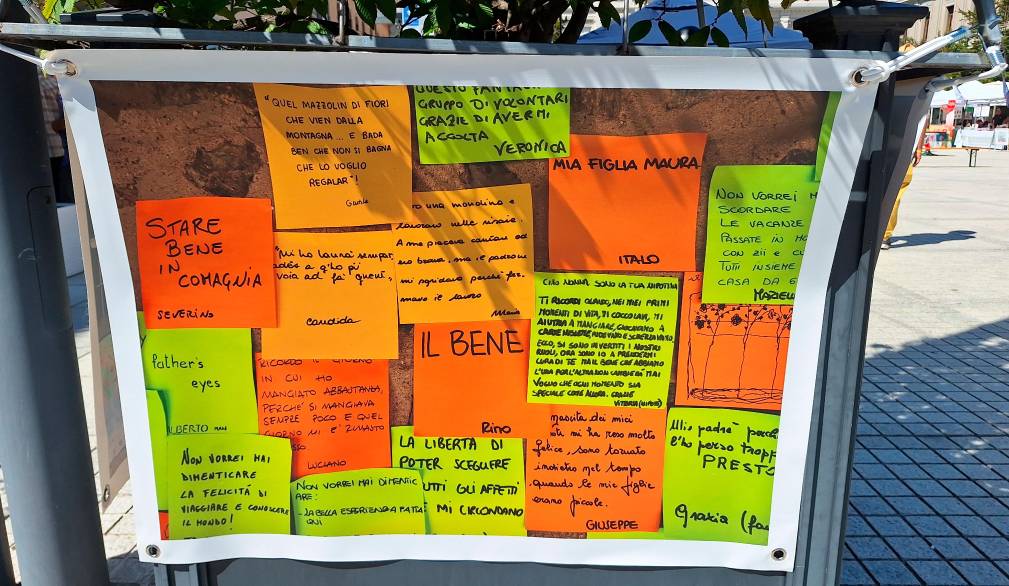 "QUEL MAZZOLIN DI FIORI
CHE VIEN DALLA
MONTAGNA... E BADA
BEN CHE NON SI BAGNA
CHE LO VOGLIO
REGALAR"!
QUESTO FANTAS
GRUPPO DI VOLONTARI
GRAZIE DI AVERMI
ACCOLTA
VERONICA
MIA FIGLIA MAURA
ITALO
NON VORREI M
SCORDARE
LE VACANZE
PASSATE IN MO
CON ZII E CU
TUTTI INSIEME
CASA DA 6
MARIELL
STARE
BENE
IN
COMAGNIA
SEVERINO
"Mi ho laurà sempre,
adés a gh'o pi
voia ad fà quent",
Candida
ro una mondina e
lavoravo nelle risaie.
A me piaceva cantare ed
ero brava, ma le padrone
mi sgridavano perchè fer-
mavo il lavoro
IL BENE
Rino
CIAO NONNA SONO LA TUA NIPOTINA
TI RICORDI QUANDO, NEI MIEI PRIMI
MOMENTI DI VITA, MI COCCOLAVI, MI
AIUTAVI A MANGIARE, GIOCAVAMO A
ECCO, SI SONO INVERTITI I NOSTRI
RUOLI, ORA SONO IO A PRENDERMI
CURA DI TE MA IL BENE CHE ABBIAMO
L'UNA PER L'ALTRA NON CAMBIERÀ MAI
VOGLIO CHE OGNI MOMENTO SIA
SPECIALE COME ALLORA. GRAZIE
VITTORIA (NIPOTE)
father's
eyes
LBERTO
RICORDO IL GIORNO
IN CUI HO
MANGIATO ABBASTANZA,
PERCHE' SI MANGIAVA
SEMPRE POCO E QUEL
GIORNO MI E' RIMASTO
SSO.
LUCIANO
NON VORREI MAI
DIMENTICARE
LA FELICITÁ DI
VIAGGIARE E CONOSCERE
IL MONDO!
NON VORREI MAI DIMENTIC
ARE:
- LA BELLA ESPERIENZA FATTA
QUI
LA LIBERTA DI
POTER SCEGLIERE
UTTI GLI AFFETTI
MI CIRCONDANO
nascita dei miei
oti mi ha reso molto
felice, sono tornato
indietro nel tempo
quando le mie figlie
erano piccole.
GIUSEPPE
Mio padre perché
l'ho perso tropp
PRESTO
Grazia (fa